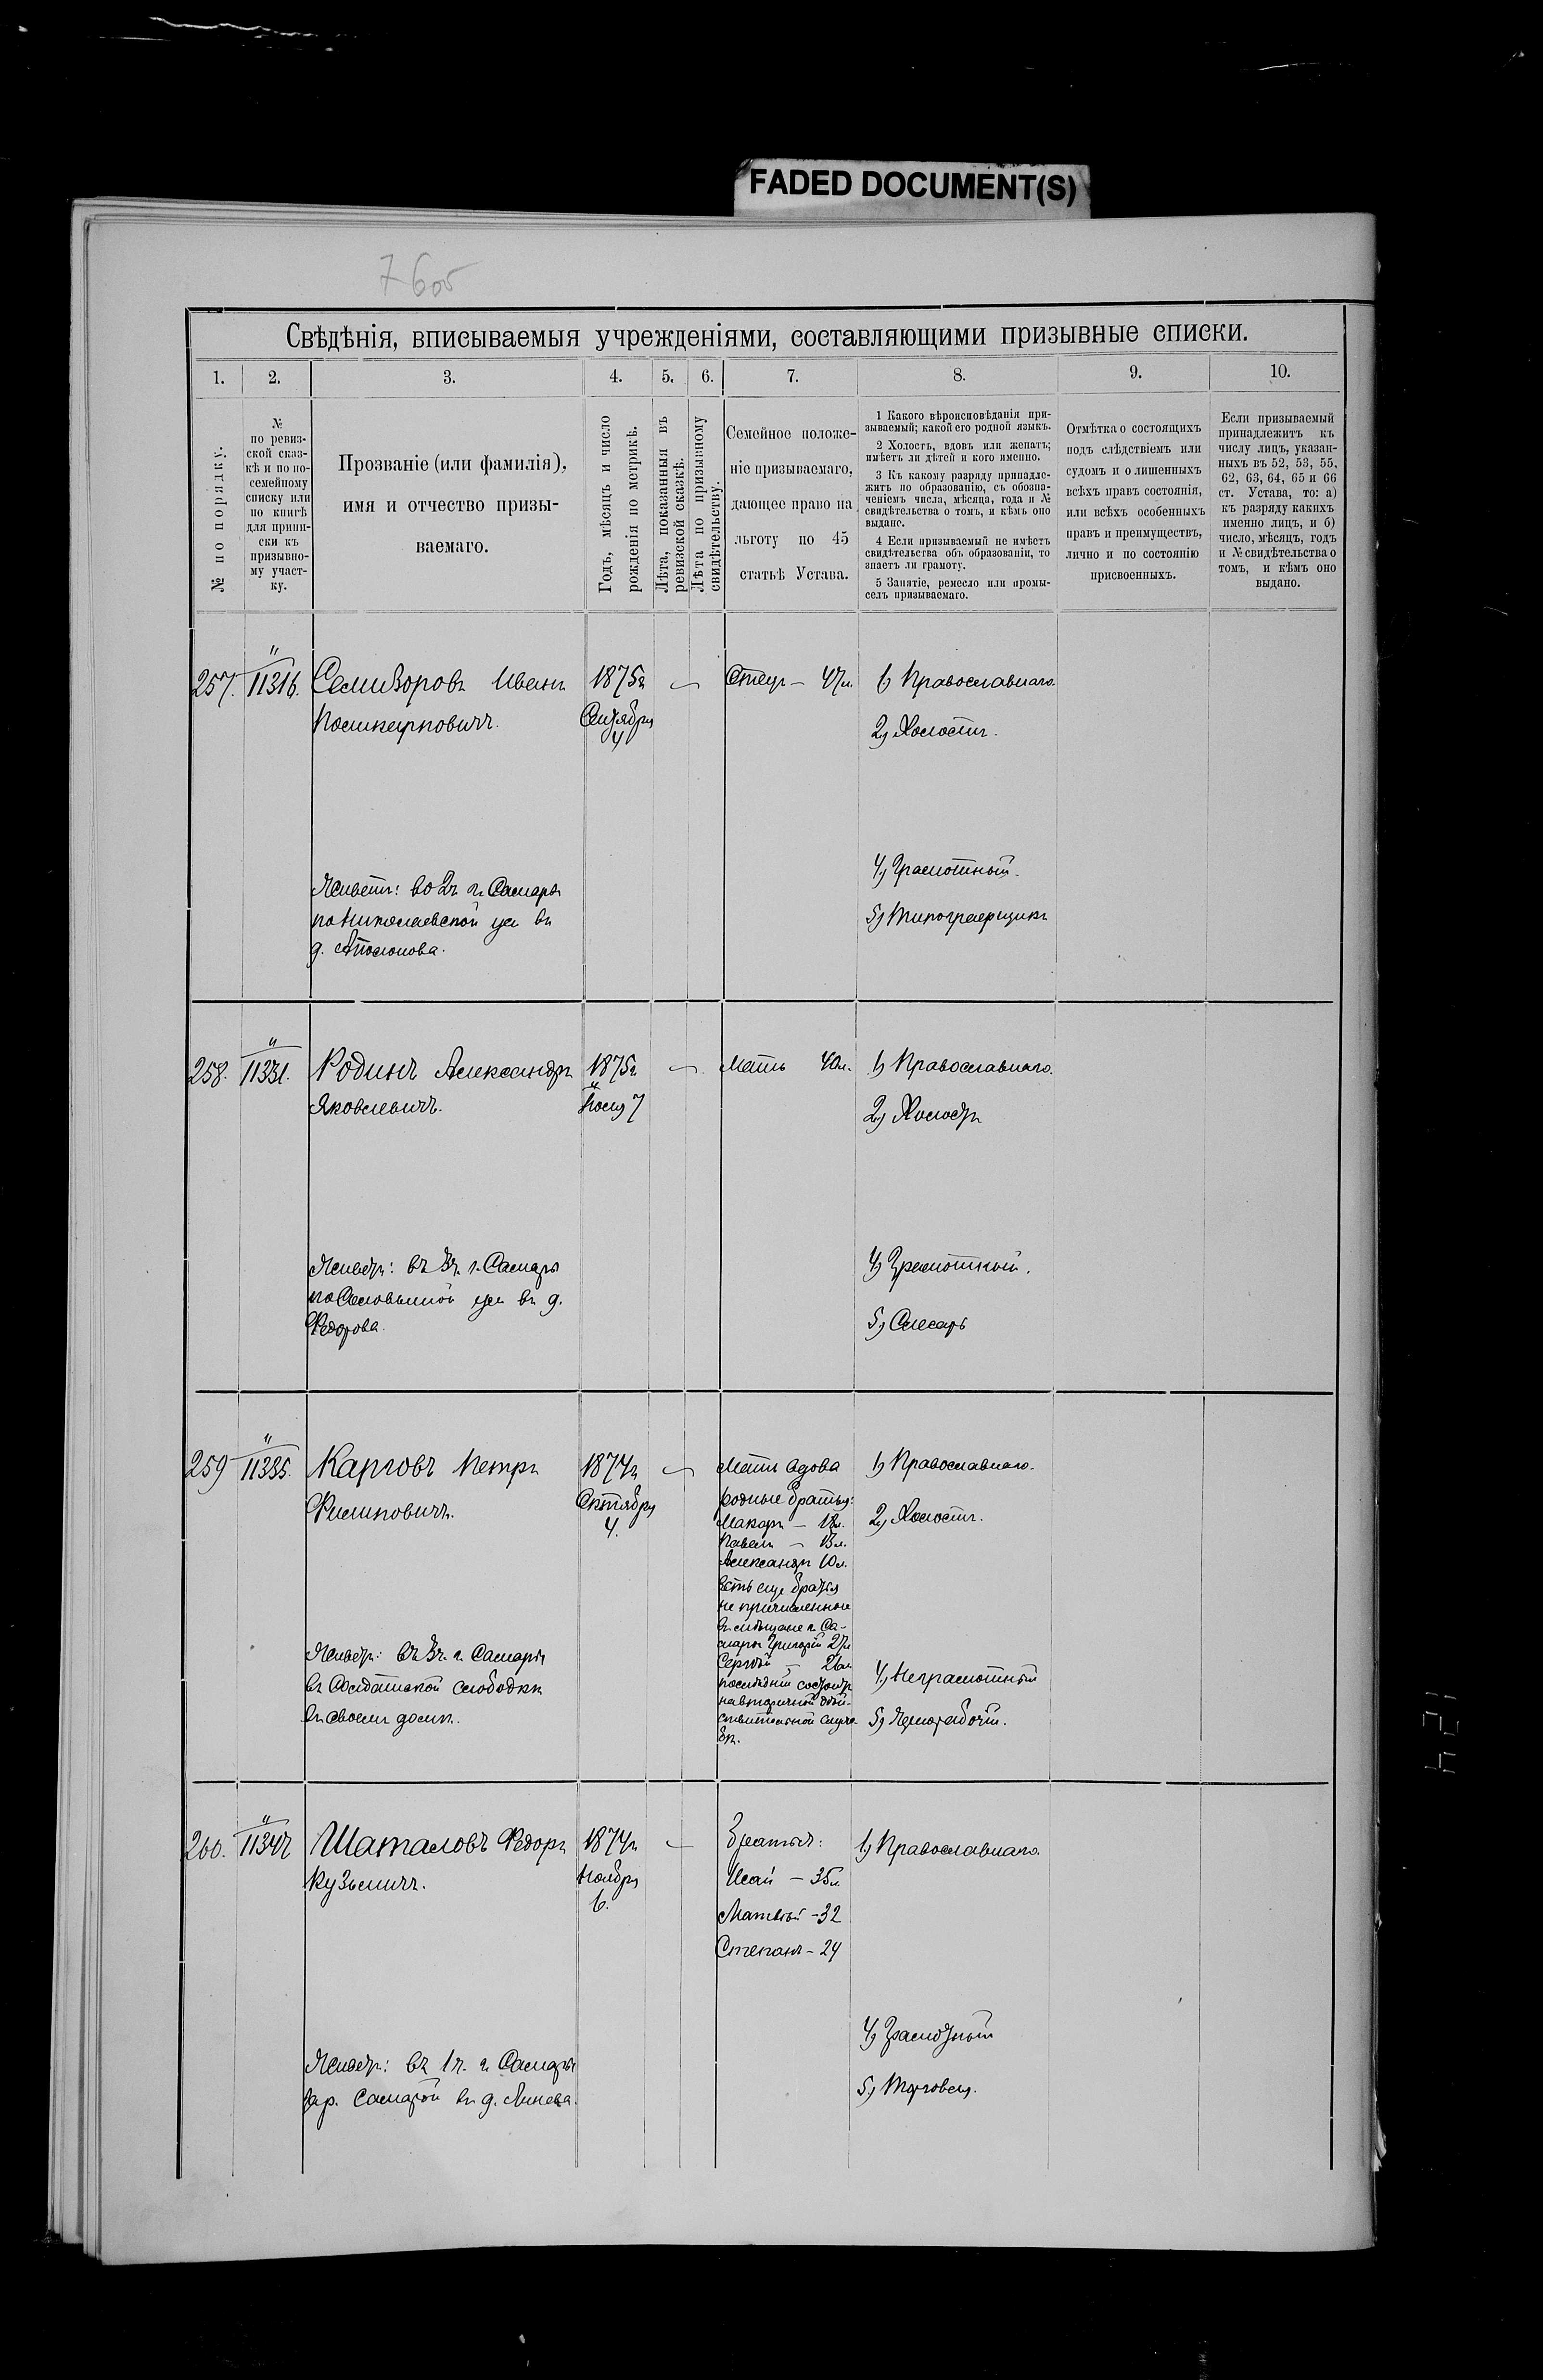 FADED DOCUMENT(S)
7605
Свѣдѣнія, вписываемыя учрежденіями, составляющими призывные списки.
1. 2. 3. 4. 5. 6. 7. 8. 9. 10.
№ по порядку.
№
по ревиз-
ской сказ-
кѣ и по по-
семейному
списку или
по книгѣ
для припи-
ски къ
призывно-
му участ-
ку.
Прозваніе (или фамилія),
имя и отчество призы-
ваемаго.
Годъ, мѣсяцъ и число
рожденія по метрикѣ.
Лѣта, показанныя въ
ревизской сказкѣ.
Лѣта по призывному
свидѣтельству.
Семейное положе-
ніе призываемаго,
дающее право на
льготу по 45
статьѣ Устава.
1 Какого вѣроисповѣданія при-
зываемый; какой его родной языкъ.
2 Холостъ, вдовъ или женатъ;
имѣетъ ли дѣтей и кого именно.
3 Къ какому разряду принадле-
житъ по образованію, съ обозна-
ченіемъ числа, мѣсяца, года и №
свидѣтельства о томъ, и кѣмъ оно
выдано.
4 Если призываемый не имѣетъ
свидѣтельства объ образованіи, то
знаетъ ли грамоту.
5 Занятіе, ремесло или промы-
селъ призываемаго.
Отмѣтка о состоящихъ
подъ слѣдствіемъ или
судомъ и о лишенныхъ
всѣхъ правъ состоянія,
или всѣхъ особенныхъ
правъ и преимуществъ,
лично и по состоянію
присвоенныхъ.
Если призываемый
принадлежитъ къ
числу лицъ, указан-
ныхъ въ 52, 53, 55,
62, 63, 64, 65 и 66
ст. Устава, то: а)
къ разряду какихъ
именно лицъ, и б)
число, мѣсяцъ, годъ
и № свидѣтельства о
томъ, и кѣмъ оно
выдано.
257. 11316. Семизоровъ Иванъ 1875г. — Отецъ — 47л. 1) Православнаго.
Поликарповичъ. Сентября
4
2) Холостъ.
4) Грамотный.
Живетъ: во 2ч. г. Самары
по Николаевской ул. въ
д.
5) Типографщикъ
258. 11331. Родинъ Александръ 1875г. — Мать 40л. 1) Православнаго.
Яковлевичъ. 7
2) Холостъ
Живетъ: въ 3ч. г. Самары
по ул. въ д.
Федорова.
4) Грамотный.
5) Слесарь
259 11335. Карповъ Петръ 1874г. — Мать вдова 1) Православнаго.
Филиповичъ. Октября
4.
родные братья:
Макаръ — 18л.
Павелъ — 13л.
Александръ 10л.
есть еще братья
не причисленные
въ мѣщане г. Са-
мары Григорій 27л.
Сергѣй — 26л.
послѣдній состоитъ
на дѣй-
ствительной служ-
бѣ.
2) Холостъ.
Живетъ: въ 3ч. г. Самары
въ Солдатской слободкѣ
въ своемъ домѣ.
4) Неграмотный
5) Чернорабочій.
260. 11347 Шаталовъ Федоръ 1874г. — Братья: 1) Православнаго.
Кузьмичъ. Ноября
6.
Исай — 35л.
Матвѣй — 32
Степанъ — 24
4) Грамотный
Живетъ: въ 1ч. г. Самары
за р. Самарой въ д.
5) Торговецъ.
124